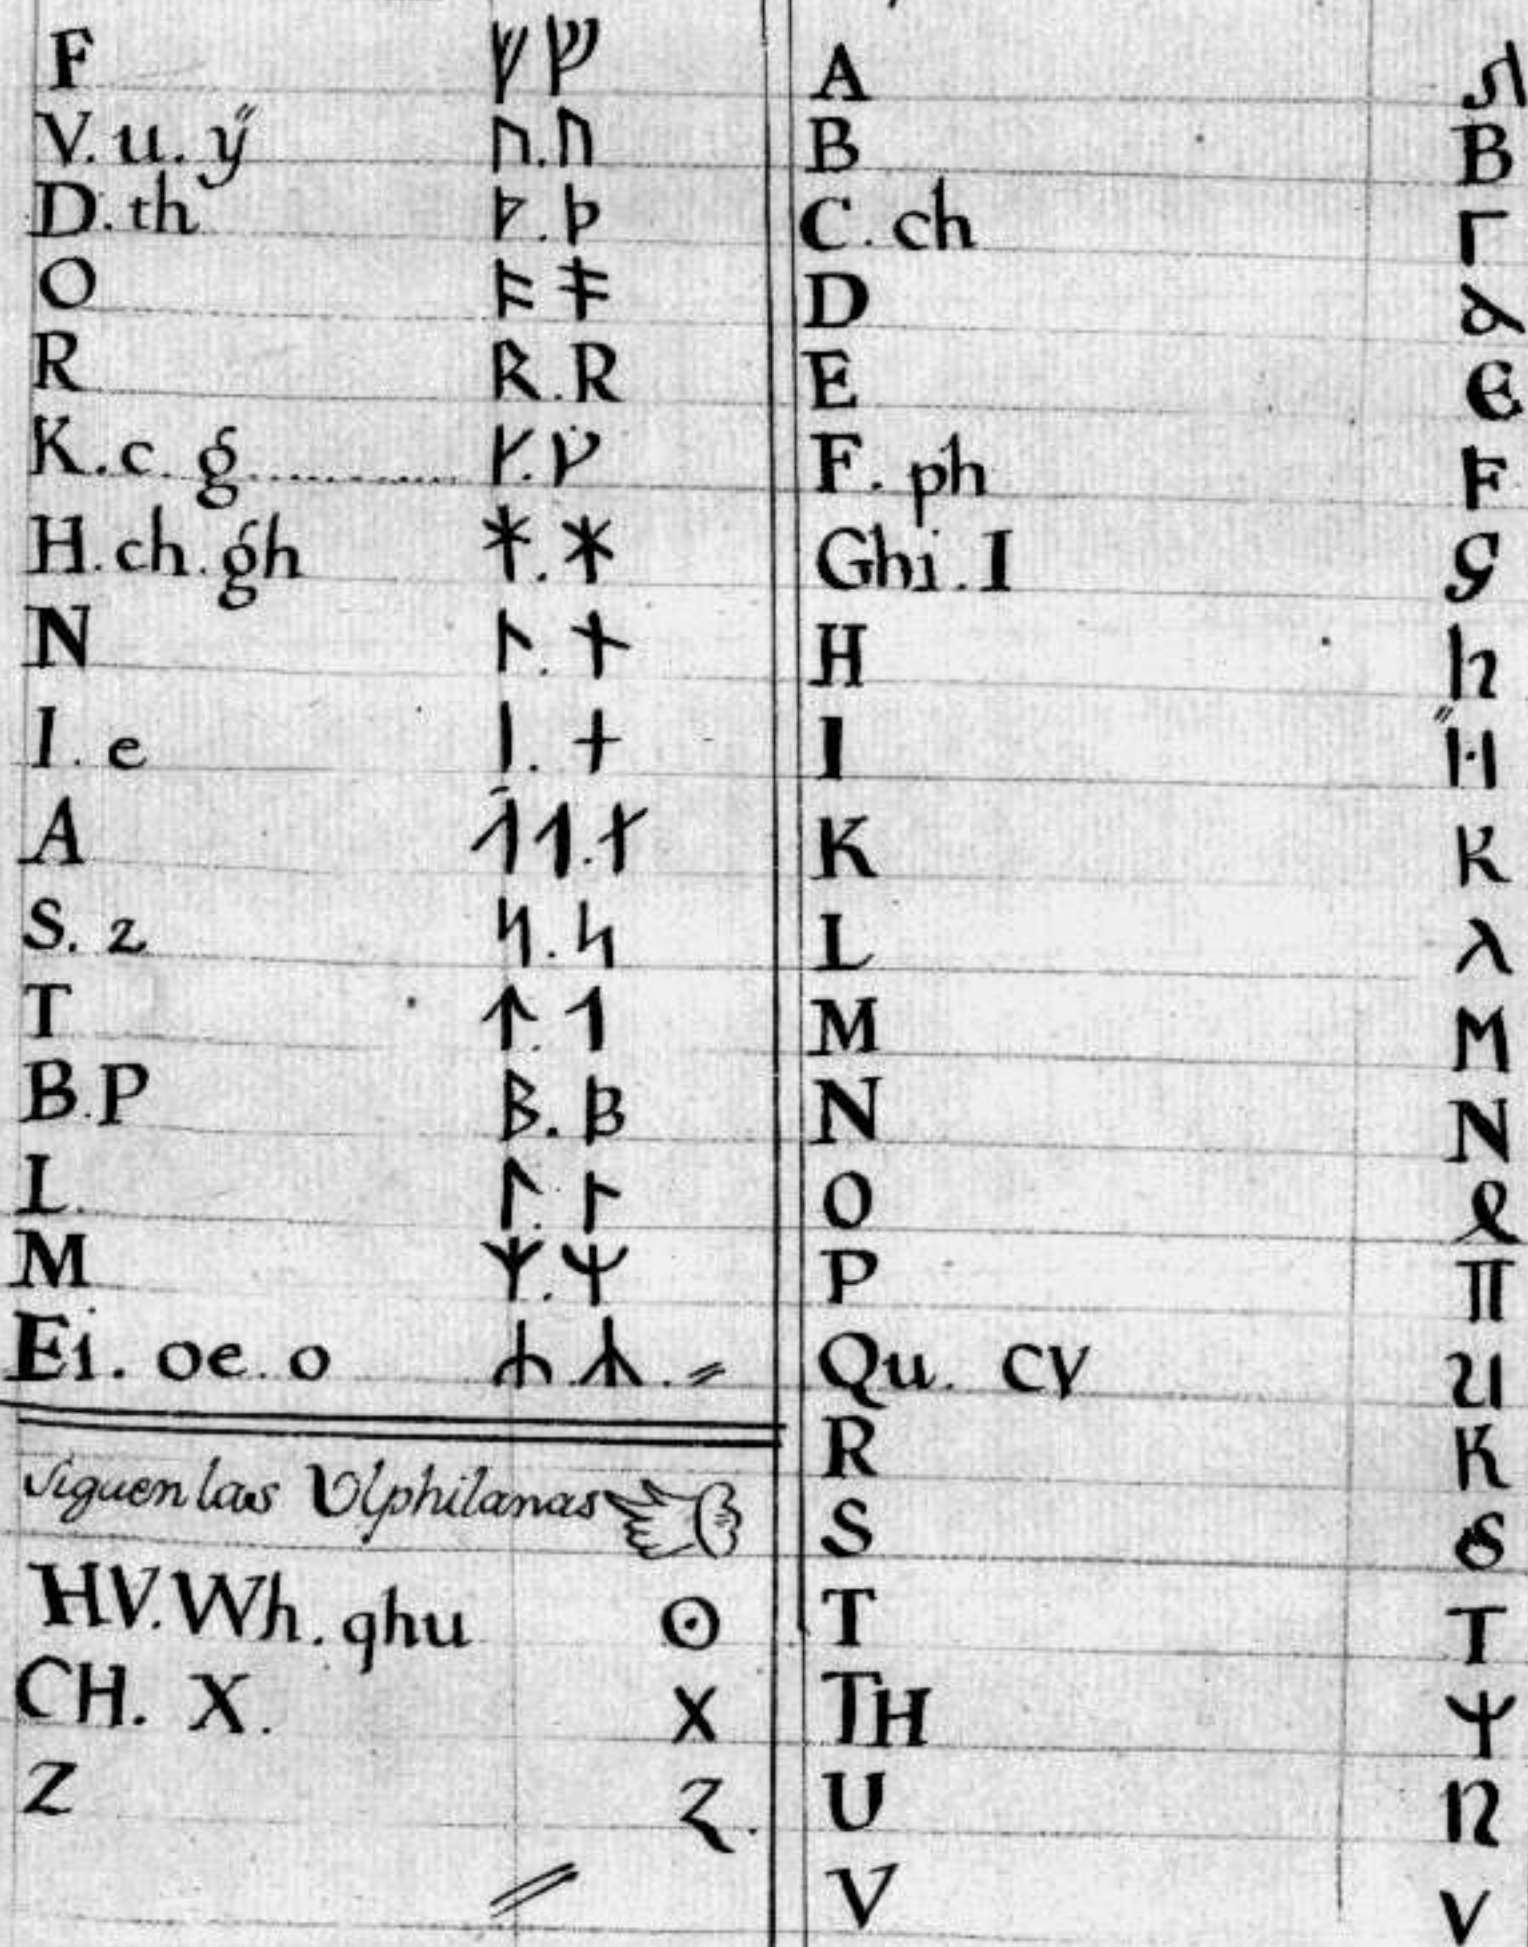 F ᚠ ᚠ
V. u. ÿ ᚢ. ᚢ
D. th ᚦ. þ
O ᚨ ǂ
R ᚱ. R
K. c. g ᚴ. ᚴ
H. ch. gh ᚼ. ᚼ
N ᚿ. ᚾ
I. e ᛁ. ᛂ
A ᛏ ᛐ. ᛆ
S. z ᛋ. ᛋ
T ᛏ. ᛐ
B. P ᛒ. ᛒ
L. ᛚ. ᛚ
M ᛘ. ᛘ
Ei. oe. o ᛦ. ᛦ. =
Siguen las Ulphilanas
HV. Wh. qhu ʘ
CH. X. X
Z Z.
A 𐌰
B B
C. ch Γ
D 𐌳
E Є
F. ph F
Ghi. I G
H h
I H
K K
L λ
M M
N N
O 𐍉
P Π
Qu. CV U
R K
S S
T T
TH Ψ
U n
V V